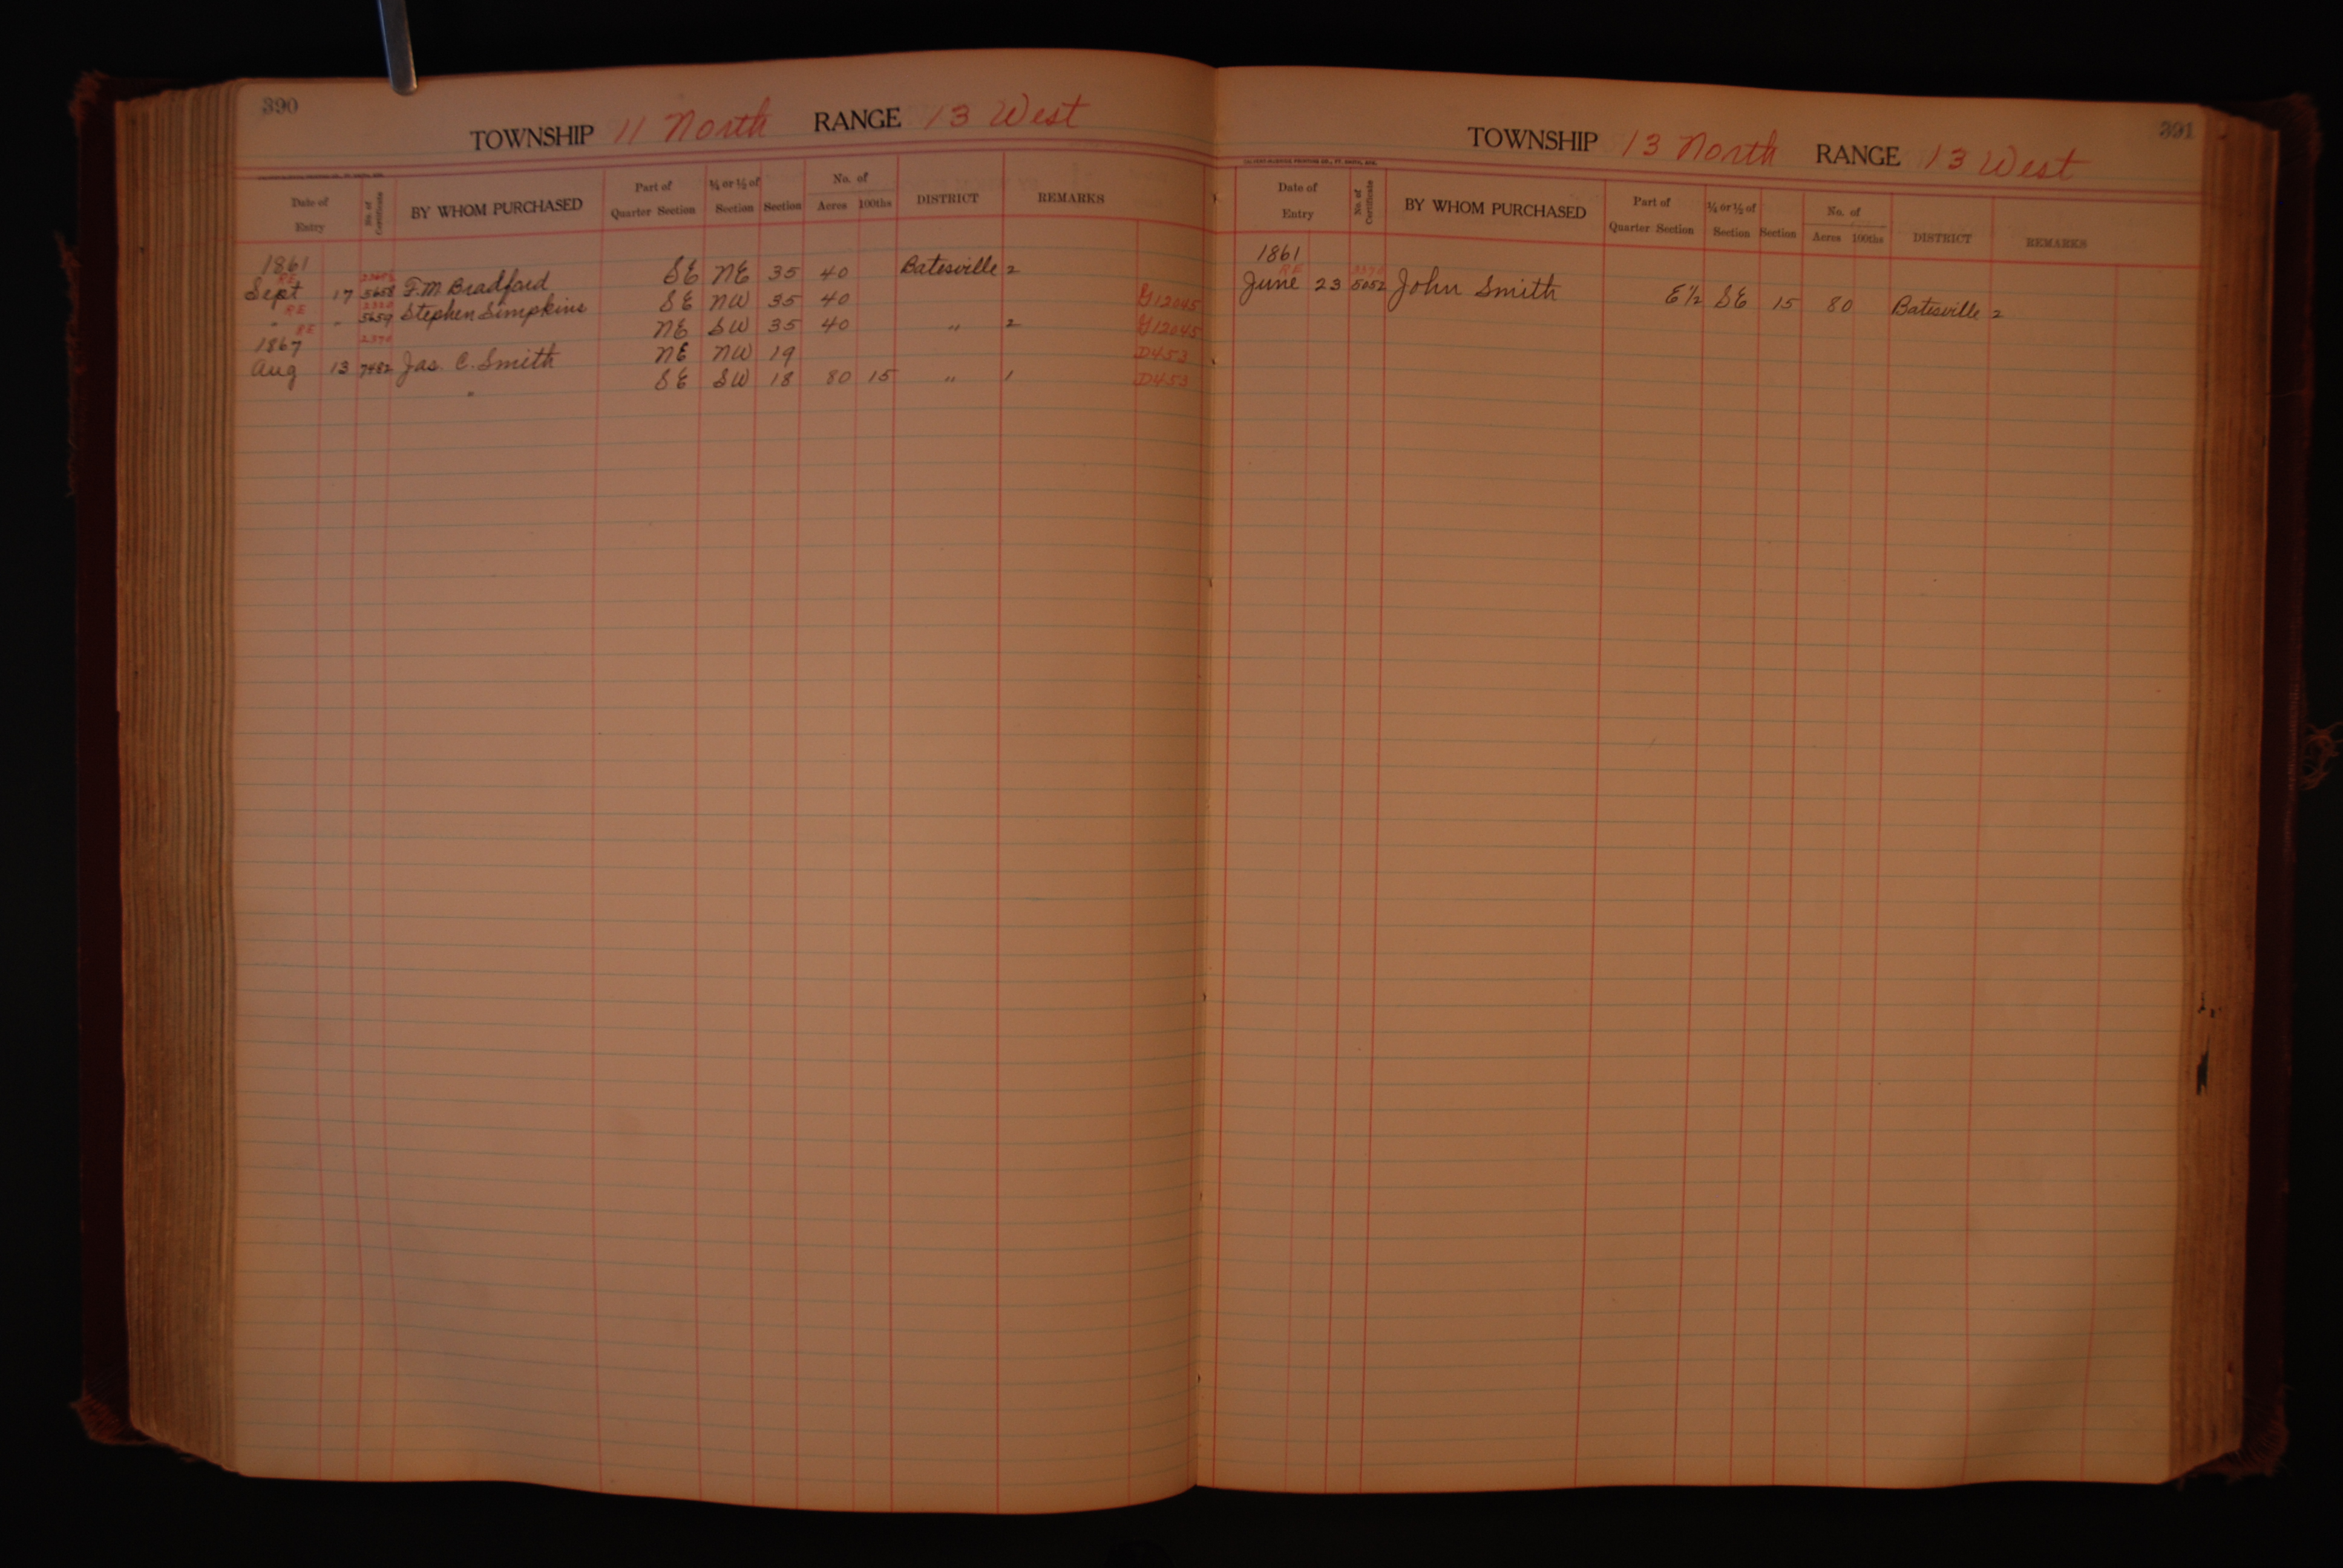 390
TOWNSHIP 11 North RANGE 13 West
Date of Entry No. of Certificate BY WHOM PURCHASED Part of Quarter Section ¼ or ½ of Section Section No. of Acres 100ths DISTRICT REMARKS
1861
RE
Sept 17 5658 F. M. Bradford SE NE 35 40 Batesville 2
RE 2330
" " 5659 Stephen Simpkins SE NW 35 40 G12045
RE NE SW 35 40 " 2 G12045
1867 2370
Aug 13 7482 Jas. C. Smith NE NW 19 D453
" SE SW 18 80 15 " 1 D453
391
TOWNSHIP 13 North RANGE 13 West
Date of Entry No. of Certificate BY WHOM PURCHASED Part of Quarter Section ¼ or ½ of Section Section No. of Acres 100ths DISTRICT REMARKS
1861
RE
June 23 5052 John Smith E½ SE 15 80 Batesville 2